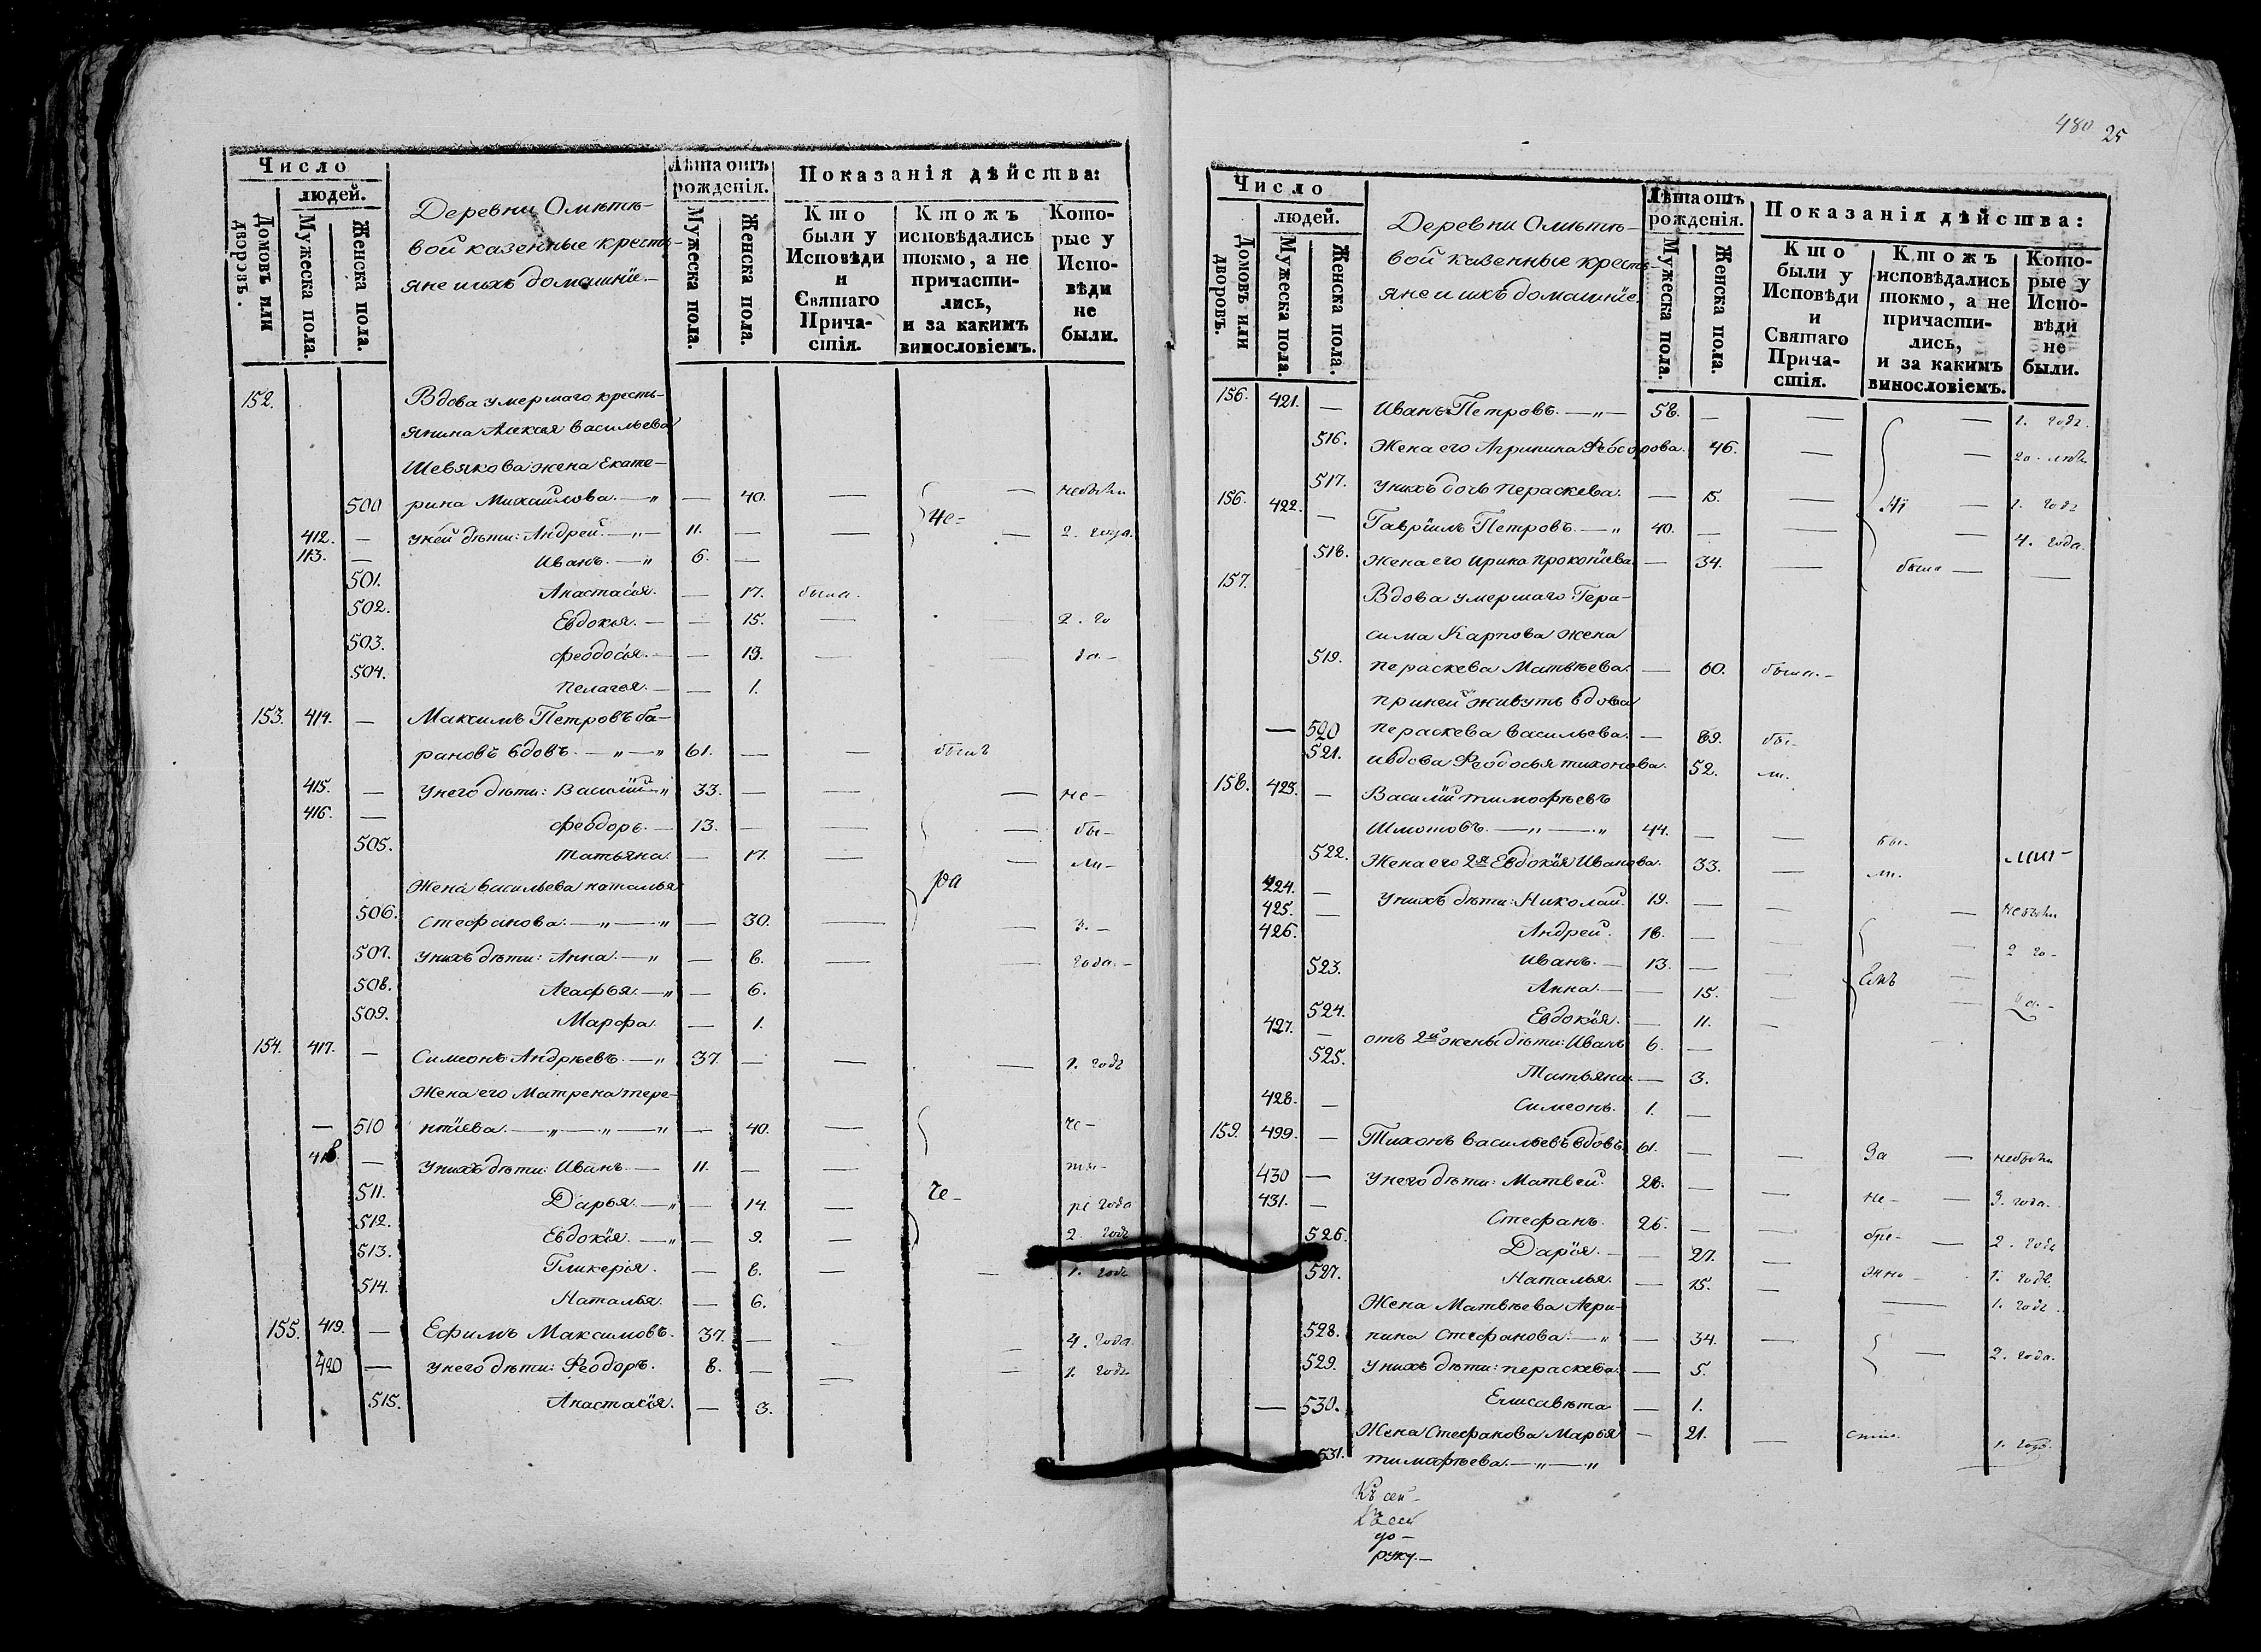 480 25
Число
людей.
Домовъ или дворовъ.
Мужеска пола.
Женска пола.
Деревни Омѣтѣ-
вой казенные кресть-
яне и ихъ домашнiе
Лѣта отъ рожденiя.
Мужеска пола.
Женска пола.
Показанiя дѣйства:
Кто были у Исповѣди и Святаго Причастiя.
Ктожъ исповѣдались токмо, а не причастились, и за какимъ винословiемъ.
Которые у Исповѣди не были.
152. Вдова умершаго кресть-
янина Алексея Васильева
Шевякова жена Екате-
500 рина Михайлова. — — 40. — — небыли
412. — у ней дѣти: Андрей. — 11. — — Не- — 2. года.
113. — Иванъ. — 6. —
501. Анастасiя. — 17. была.
502. Евдокiя. — — 15. — 2. го
503. Феодосiя. — — 13. — да. -
504. Пелагея. — — 1.
153. 414. — Максимъ Петровъ Ба-
рановъ вдовъ. — 61. — — былъ
415. — У него дѣти: Василiй 33. — — — не-
416. — Феодоръ. — 13. — — — бы-
505. Татьяна. — 17. — — ли-
Жена Васильева Наталья ра
506. Стефанова. — — 30. — — 3. -
507. У нихъ дѣти: Анна. — — 8. — — года. -
508. Агафья. — — 6.
509. Марфа. — 1.
154. 417. — Симеонъ Андрѣевъ. — 37. — — — 1. годъ
Жена его Матрена Тере-
— 510 нтiева. — — — 40. — не-
418. — У нихъ дѣти: Иванъ. — 11. — —
511. Дарья. — — 14. — Че- ре года
512. Евдокiя. — — 9. — 2. года
513. Гликерiя. — 8. — — 1. годъ
514. Наталья. — 6.
155. 419. — Ефимъ Максимовъ. 37. — — — 4. года
420 — У него дѣти: Феодоръ. 8. — — — 1. годъ
515. Анастасiя. — 3.
Число
людей.
Домовъ или дворовъ.
Мужеска пола.
Женска пола.
Деревни Омѣтѣ-
вой казенные кресть-
яне и ихъ домашнiе
Лѣта отъ рожденiя.
Мужеска пола.
Женска пола.
Показанiя дѣйства:
Кто были у Исповѣди и Святаго Причастiя.
Ктожъ исповѣдались токмо, а не причастились, и за какимъ винословiемъ.
Которые у Исповѣди не были.
156. 421. — Иванъ Петровъ. — 58. — — — 1. годъ.
516. Жена его Агрипина Феодорова. 46. — —
517. У нихъ дочь Пераскева. — 15. — — 1. годъ
156. 422. — Гаврiилъ Петровъ. — 40. — — — 4. года.
518. Жена его Ирина Прокопiева. — 34. — была — —
157. Вдова умершаго Гера-
сима Карпова жена
519. Пераскева Матвѣева. — 60. была. -
при ней живутъ вдова
— 520 Пераскева Васильева. — 69. бы-
521. и вдова Феодосья Тихонова. 52. ли.
158. 423. — Василiй Тимофѣевъ
Шмотовъ. — — 44. — — бы-
522. Жена его 2я Евдокiя Иванова. 33. — ли.
424. — У нихъ дѣти: Николай. 19. — — небыли
425. — Андрей. 18. — — — 2 го-
426. Иванъ. — 13. — — —
523. Анна. — — 15. — — да. -
524. Евдокiя. — 11. —
427. — отъ 2й жены дѣти: Иванъ 6. —
525. Татьяна. — 3.
428. — Симеонъ. 1. —
159. 499. — Тихонъ Васильевъ вдовъ 61. — — За — небыли
430 — У него дѣти: Матвей. 28. — — не- — 3. года.
431. — Стефанъ. 26. — — бре- — 2. года
526. Дарiя. — — 27. — 1. годъ.
527. Наталья. — 15. — — 1. годъ.
Жена Матвѣева Агри-
528. пина Стефанова. — — 34. — — 2. года.
529. У нихъ дѣти: Пераскева. — 5.
— 530. Елисавѣта — 1.
Жена Стефанова Марья — 21. — 1. годъ.
531. Тимофѣева. — —
Къ сей
Къ сей
руку. —